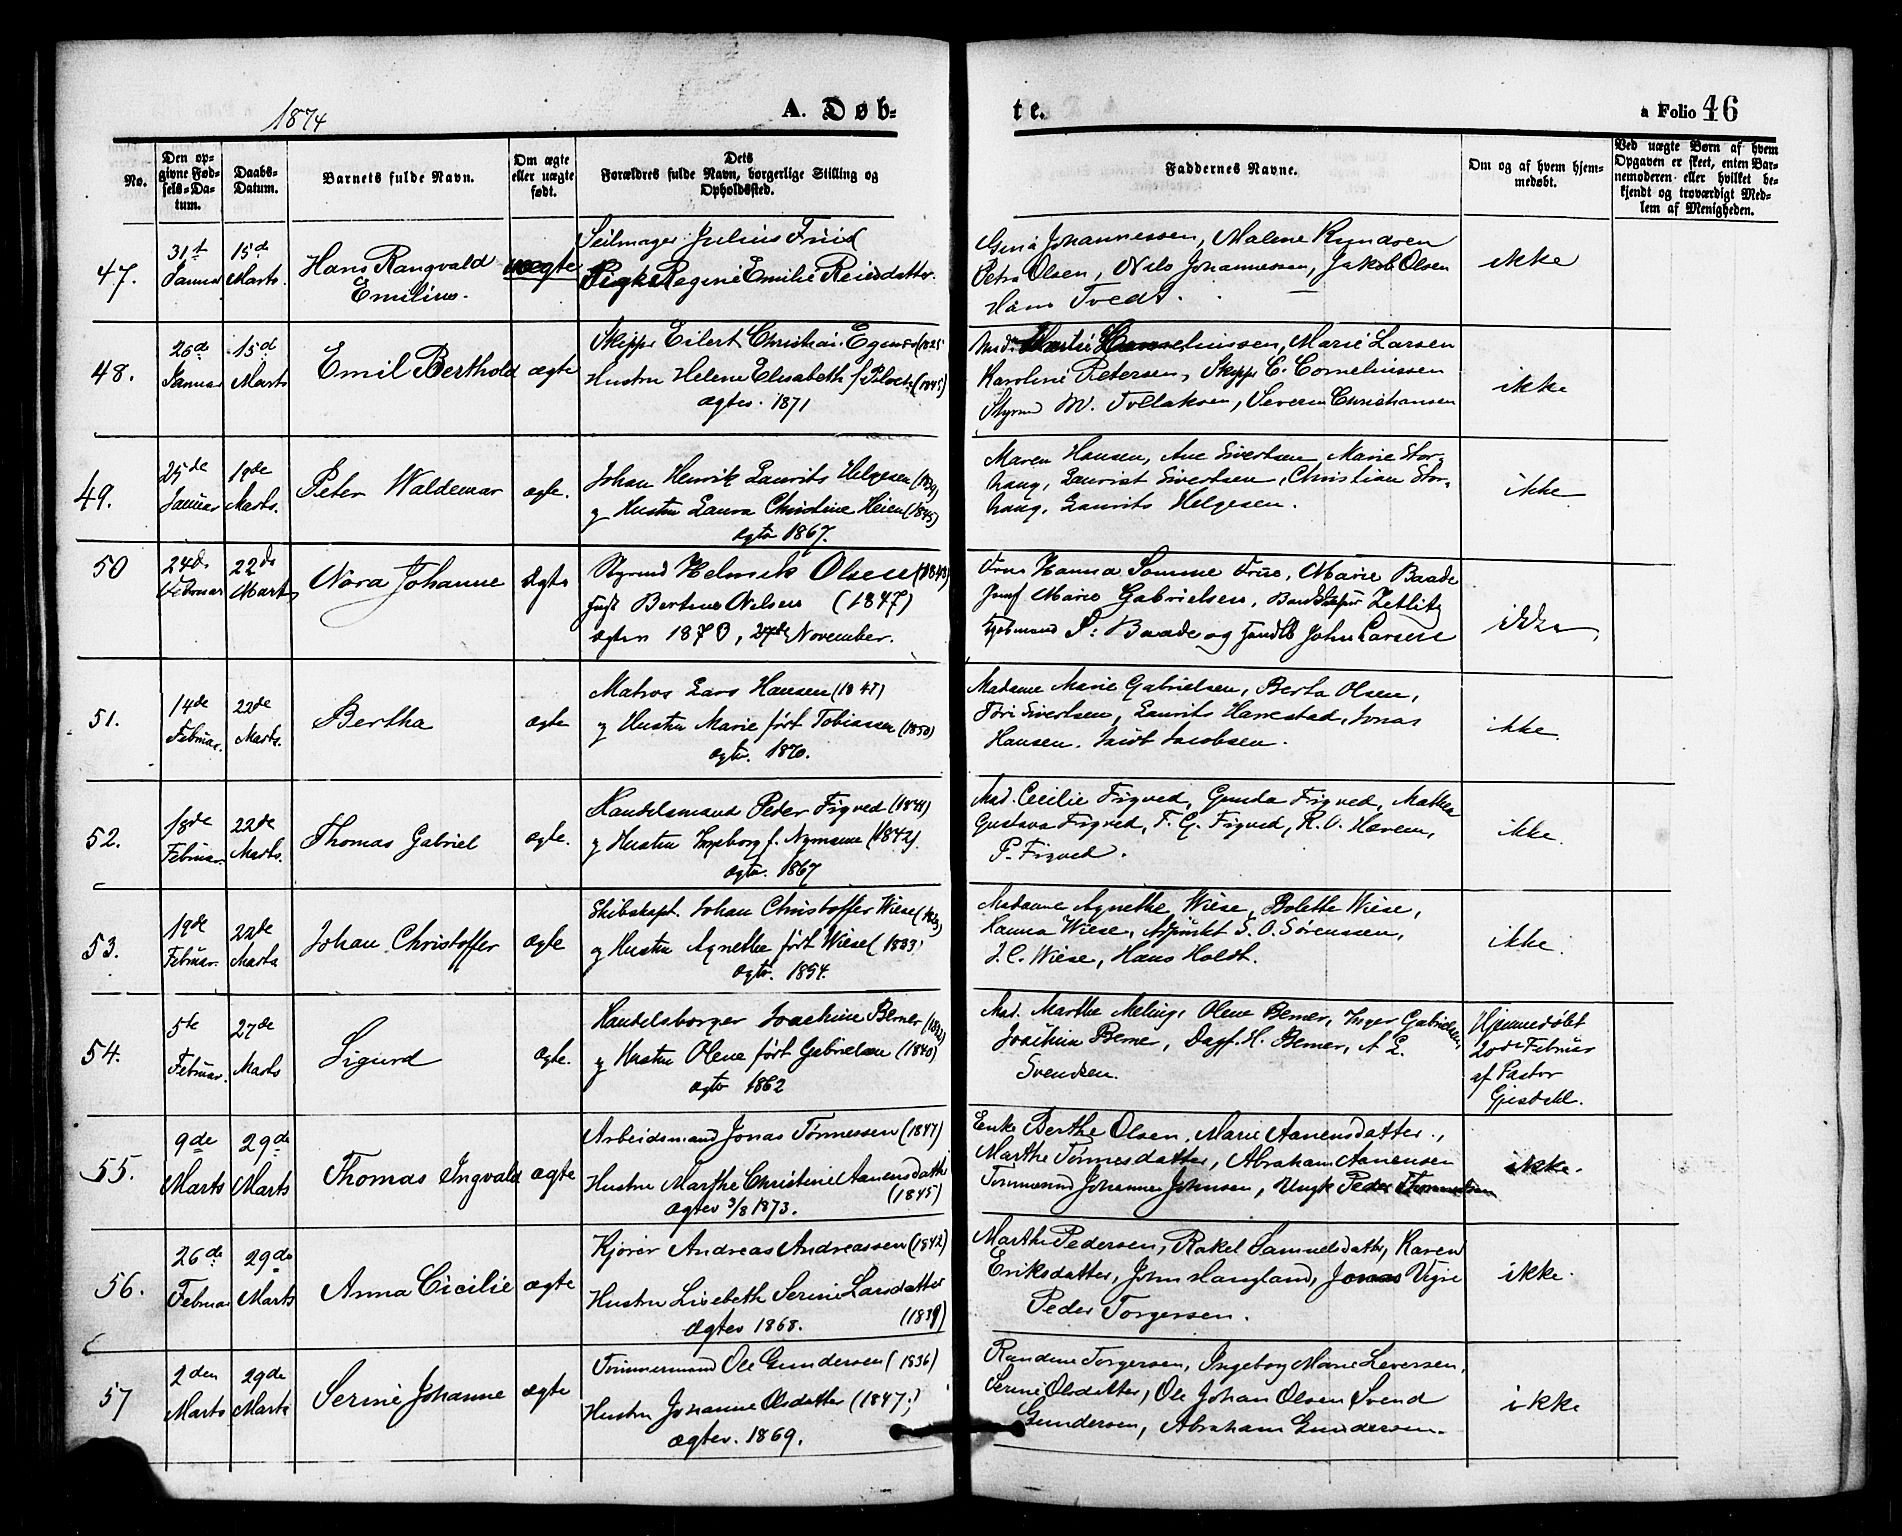 1874
A. Døb-
te.
a Folio 46
No.
Den op-
givne Fød-
sels-Da-
tum.
Daabs-
Datum.
Barnets fulde Navn.
Om ægte
eller uægte
født.
Dets
Forældres fulde Navn, borgerlige Stilling og
Opholdssted.
Faddernes Navne.
Om og af hvem hjem-
medøbt.
Ved uægte Børn af hvem
Opgaven er skeet, enten Bar-
nemoderen eller hvilket be-
kjendt og troværdigt Med-
lem af Menigheden.
47.
31te
Januar
15de
Marts.
Hans Rangvald
Emilius.
uægte
Seilmager Julius
Pige Regine Emilie
Johannessen, Malene Knudsen
Petra Olsen, Nils Johannessen, Jakob Olsen
Hans Tvedt.
ikke
48.
26de
Januar
15de
Marts
Emil Berthold
ægte
Skipp. Eilert Christian
Hustru Helene Elisabeth f. (1845)
ægtev. 1871
Marie Larsen
Karoline Petersen, Skipp. C. Corneliussen
Styrmd. M. Tollaksen, Severin Christiansen
ikke
49.
25de
Januar
19de
Marts.
Peter Waldemar
ægte.
Johan Henrik Laurits Helgesen (1839)
og Hustru Laura Christine Heien (1845)
ægtv 1867.
Maren Hansen, Ane Sivertsen, Marie Stor-
haug, Laurist Sivertsen, Christian Stor-
haug, Laurits Helgesen.
ikke
50
24de
Februar
22de
Marts
Nora Johanne
ægte
Styrmd Helmik Olsen (1843)
Hust Bertine Nilsen (1847)
ægtev 1870, 27de November.
Fru Hanna Sømme Frue, Marie Baade
Jomf Marie Gabrielsen, Zetlitz
Kjøbmand S. Baade og John Larsen
ikke
51.
14de
Februar.
22de
Marts.
Bertha
ægte
Matros Lars Hansen (1847)
og Hustru Marie født Tobiassen (1850)
ægtv. 1870.
Madame Marie Gabrielsen, Berta Olsen,
Sivertsen, Laurits Hanestad, Jonas
Hansen. Jacobsen.
ikke
52.
18de
Februar.
22de
Marts.
Thomas Gabriel
ægte.
Handelsmand Peder Figved (1841)
og Hustru Ingeborg f. Nymann (1842).
ægtv. 1867
Mad. Cecilie Figved, Gunda Figved,
Gustava Figved, T. G. Figved, R. O. Haven,
P. Figved.
ikke.
53.
19de
Februar.
22de
Marts
Johan Christoffer
ægte
Skibskapt. Johan Christoffer Wiese
og Hustru Agnethe født Wiese (1833)
ægtv. 1854.
Madame Agnethe Wiese, Bolette Wiese,
Hanna Wiese, Adjunkt S. O. Sørenssen,
J. C. Wiese, Hans Holdt.
ikke.
54.
5te
Februar.
27de
Marts
Sigurd
ægte.
Handelsborger Joachim Berner
og Hustru Olene født Gabrielsen (1840)
ægtv 1862
Mad. Marthe Meling, Olene Berner, Inger Gabrielsen,
Joachim Berner, Dagf. H. Berner, A. E.
Svendsen.
Hjemmedøbt
20de Februar
af Pastor
Gjesdahl.
55.
9de
Marts
29de
Marts
Thomas Ingvald
ægte
Arbeidsmand Jonas Tønnessen (1847)
Hustru Marthe Christine Aanensdatter
(1845)
ægtev 3/8 1873.
Enke Berthe Olsen, Marie Aanensdatter,
Marthe Tønnesdatter, Abraham Aanensen
Tømmermd Johannes Johnsen, Ungk Peder
ikke.
56.
26de
Februar
29de
Marts
Anna Cicilie
ægte
Kjører Andreas Andreassen (1842)
Hustru Lisebeth Serine Larsdatter
(1839)
ægtev 1868.
Marthe Pedersen, Rakel Samuelsdattr, Karen
Eriksdatter, John Haugland, Jonas Vigre
Peder Torgersen.
ikke.
57
2den
Marts
29de
Marts
Serine Johanne
ægte
Tømmermand Ole Gundersen (1836)
Hustru Johanne Olsdatter (1847)
ægtev. 1869.
Randine Torgersen, Ingeborg Marie Leversen,
Serine Olsdatter, Ole Johan Olsen Svend
Gundersen, Abraham Gundersen.
ikke